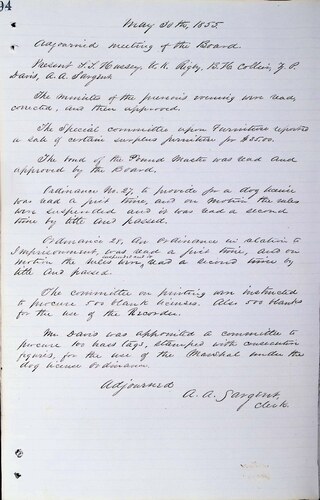 94
May 30th, 1855.
Adjourned meeting of the Board.
Present T. T. Hussey, W. K. Rigby, B. H. Collins, Z. P.
Davis, A. A. Sargent
The minutes of the previous evening were read,
corrected, and then approved.
The Special committee upon Furniture reported
a sale of certain surplus furniture for $25.00.
The bond of the Pound Master was read and
approved by the Board.
Ordinance No. 27, to provide for a dog license
was read a first time, and on motion the rules
were suspended and it was read a second
time by title and passed.
Ordinance 28, An Ordinance in relation to
Imprisonment, was read a first time, and on
motion the rules were suspended and it read a second time by
title and passed.
The committee on printing were instructed
to procure 500 blank licenses. Also 500 blanks
for the use of the Recorder.
Mr Davis was appointed a committee to
procure 100 brass tags, stamped with consecutive
figures, for the use of the Marshal under the
dog license ordinance.
Adjourned
A. A. Sargent,
Clerk.